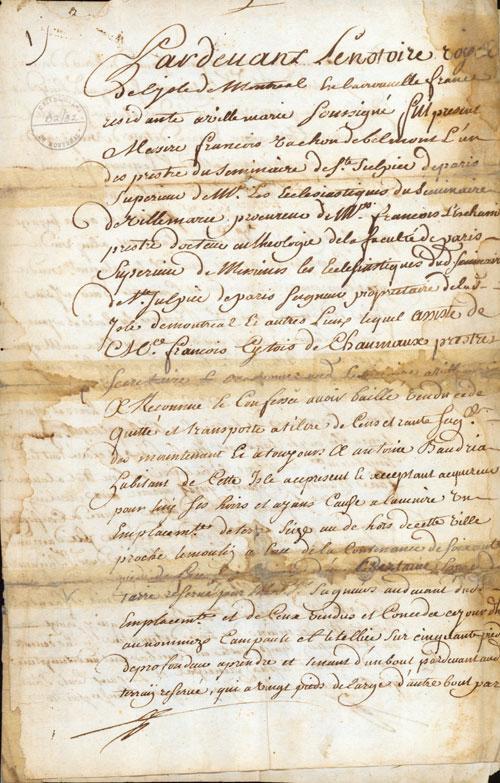 1)
Pardevant Le notoire royal
de L'jsle de Montreal En la nouvelle france
residante a villemarie Soussigné fut present
Messire françois vachon de belmont L'un
des prestre du seminaire de St Sulpice de paris
Superieur de Mrs Les Ecclesiastiques du Seminaire
de Villemarie procureur de Mre françois Leschassi
prestre docteur en theologie de la faculté de paris
Superieur de Messieurs les Ecclesiastiques dud. Seminaire
de St Sulpice de paris Seigneur proprietaire de la d.
Isle de montreal Et autres Lieux lequel assisté de
Mre françois Cytois de Chaumaux prestre
Secretaire
A Reconnu et Confessé avoir baillé vendu cedé
quitté et transporté a tiltre de Cens et rente
des maintenant Et a toujours A antoine Baudria
habitant de Cette Isle a ce present et acceptant acquereur
pour luy ses hoirs et ayans Cause a lavenir Un
Emplacemt. de terre Size au de hors de cette ville
proche le moulin a de la Contenance de soixante
terre reservé Seigneurs audevant dud.
Emplacemt. et de Ceux vendus et Concedez cejourdh
aux nommez Campault et Letellier sur cinquante pieds
de profondeur a prendre et tenant d'un bout pardevant au
terrain reservé, qui a vingt pieds de large d'autre bout par